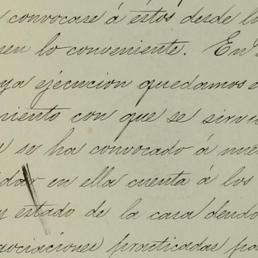 convocase á éstos desde l
sen lo conveniente. En
ya ejecucion quedamos
miento con que se sirv
se ha convocado á
dar en ella cuenta á los
estado de la casa dend
ociaciones practicadas po